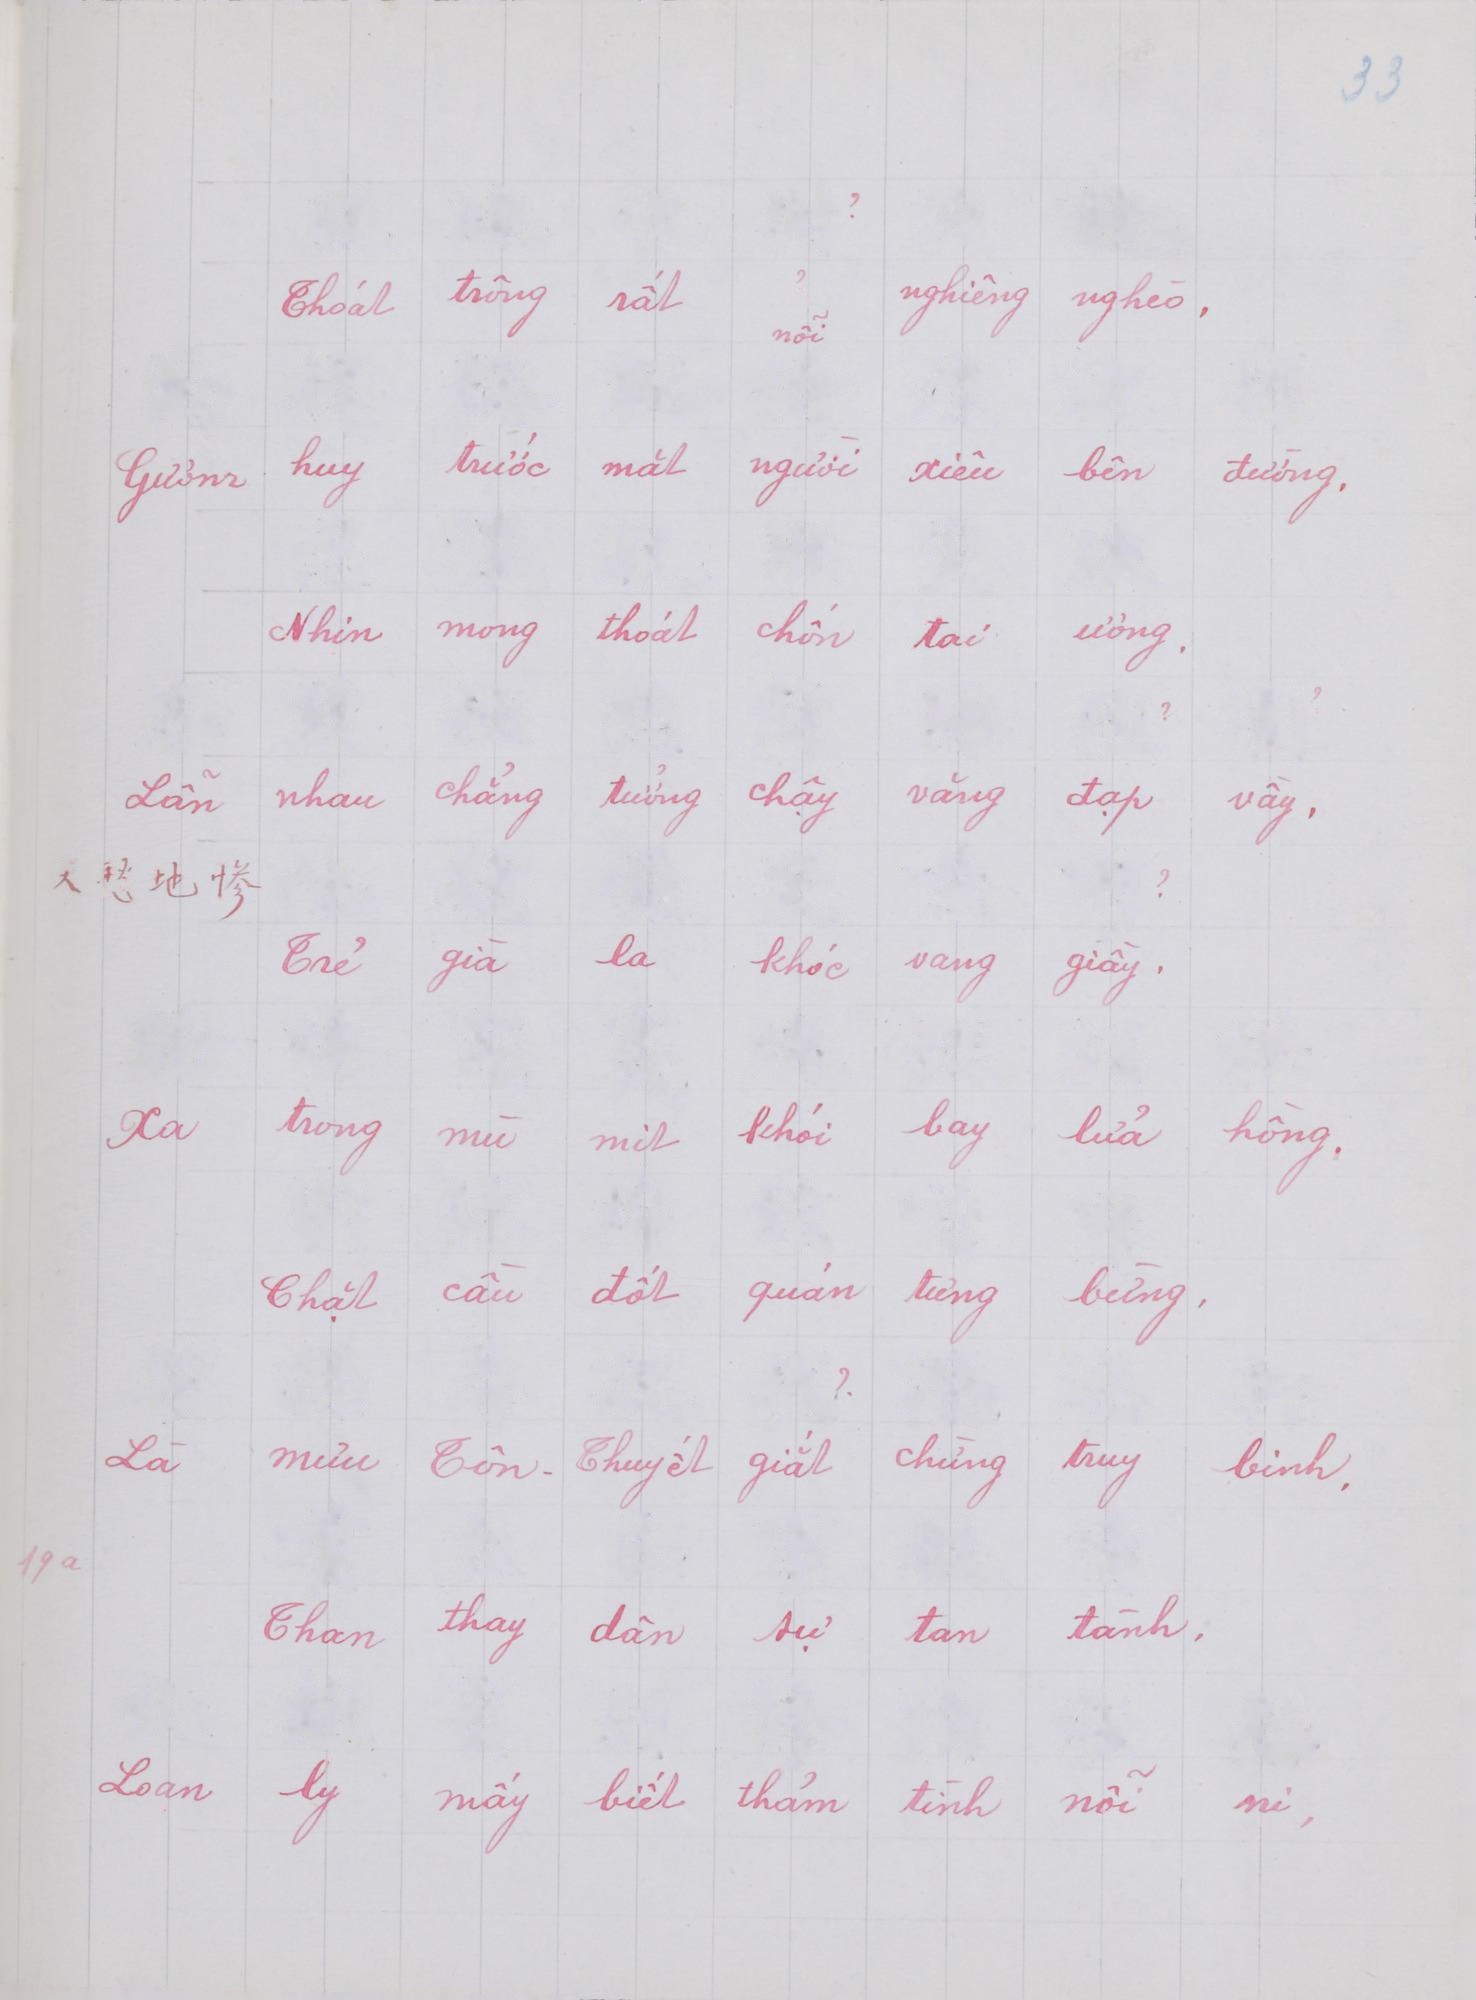 33
?
Thoát trông rất ? nghiêng nghèo,
nỗi
Gương huy trước mắt người xiêu bên đường.
Nhìn mong thoát chốn tai ương,
? ?
Lẫn nhau chẳng tưởng chậy văng đạp vầy,
天愁地慘
?
Trẻ già la khóc vang giầy.
Xa trong mù mịt khói bay lửa hồng.
Chặt cầu đốt quán tưng bừng,
?
Là mưu Tôn-Thuyết giắt chừng truy binh,
19a
Than thay dân sự tan tành,
Loan ly mấy biết thảm tình nỗi ni,